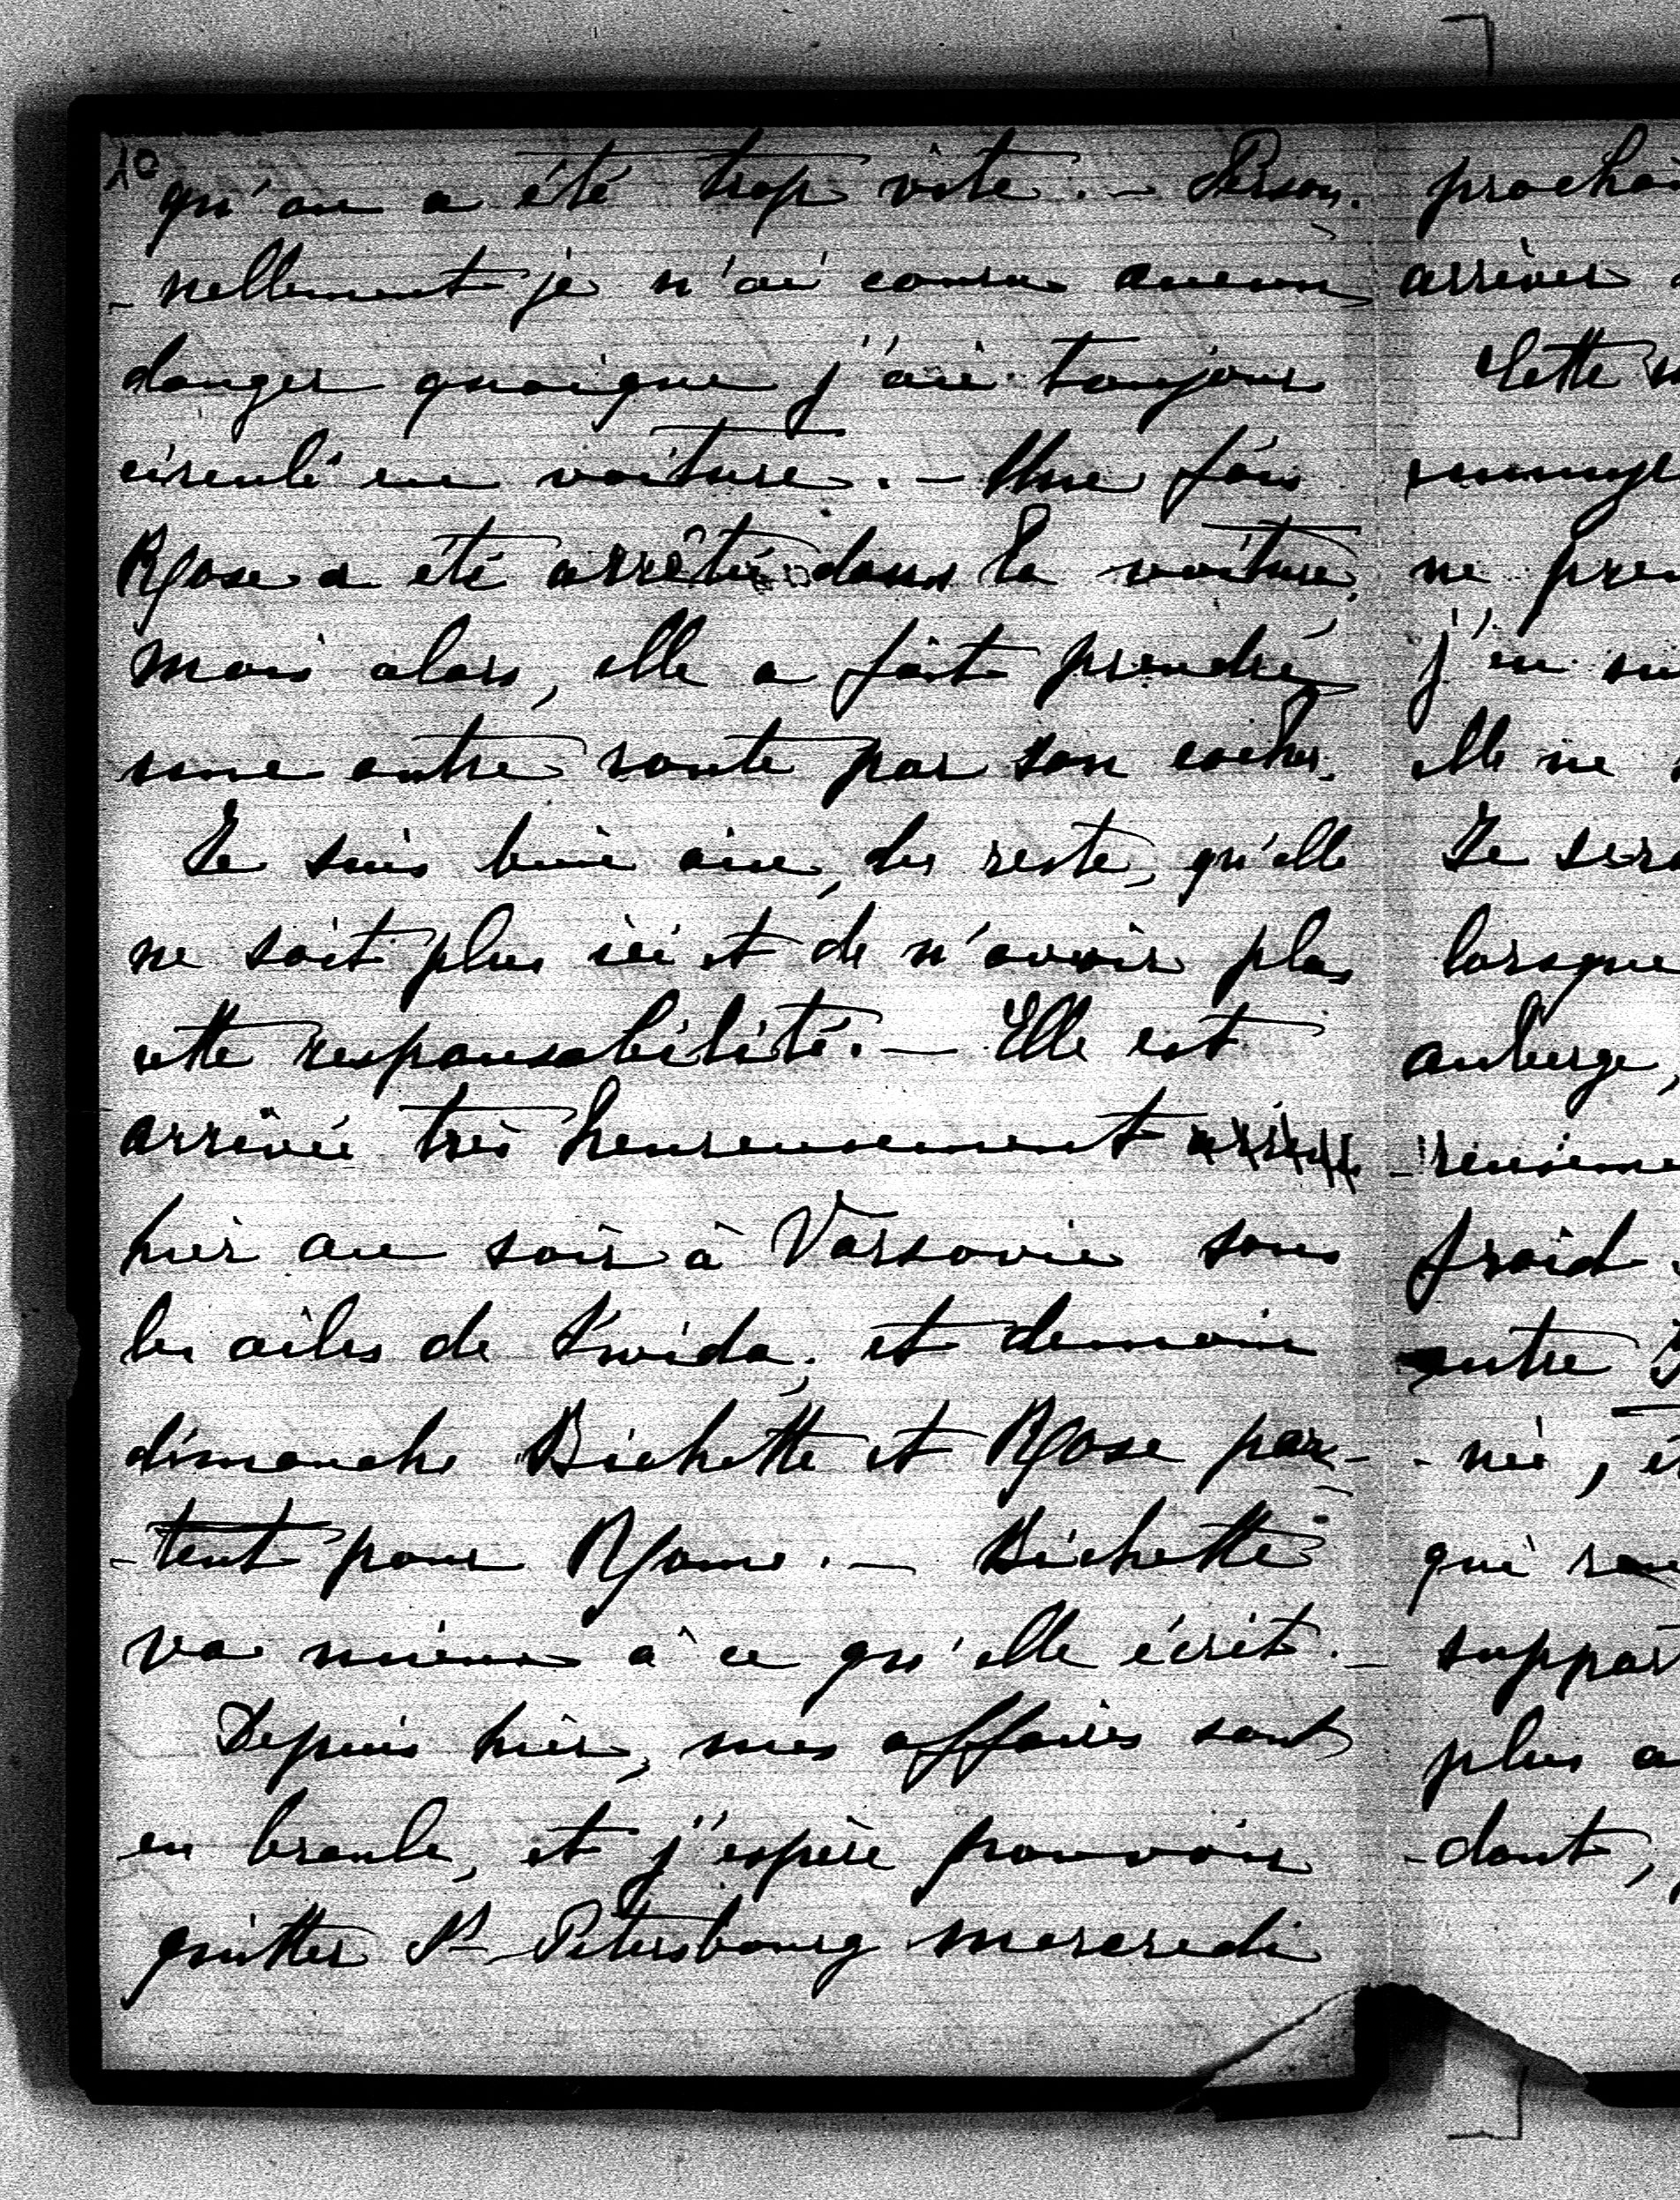 10
qu'on a été trop vite. – Person-
-nellement je n'ai couru aucun
danger quoique j'aie toujours
circulé en voiture. – Une fois
Rose a été arrêtée dans la voiture,
mais alors, elle a fait prendre
une autre route par son cocher.
Je suis bien aise, du reste, qu'elle
ne soit plus ici et de n'avoir plus
cette responsabilité. – Elle est
arrivée très heureusement
hier au soir à Varsovie sous
les ailes de , et demain
dimanche Bichette et Rose par-
-tent pour Rome. – Bichette
va mieux à ce qu'elle écrit. –
Depuis hier, mes affaires sont
en branle, et j'espère pouvoir
quitter St Pétersbourg mercredi
procha
arriver
Cette
ne pre
j'en
elle ne
Je ser
lorsque
auberge,
froid
entre
-née, et
qui
suppor
plus a
-dant,